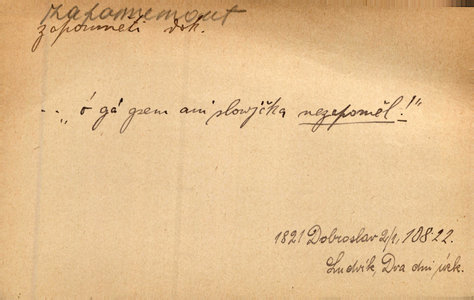 zapomenout
zapomněti dok.
.. „ó gá gsem ani slowjčka nezepoměl!"
1821 Dobroslav 2/1, 108 22.
Ludvík, Dva dni